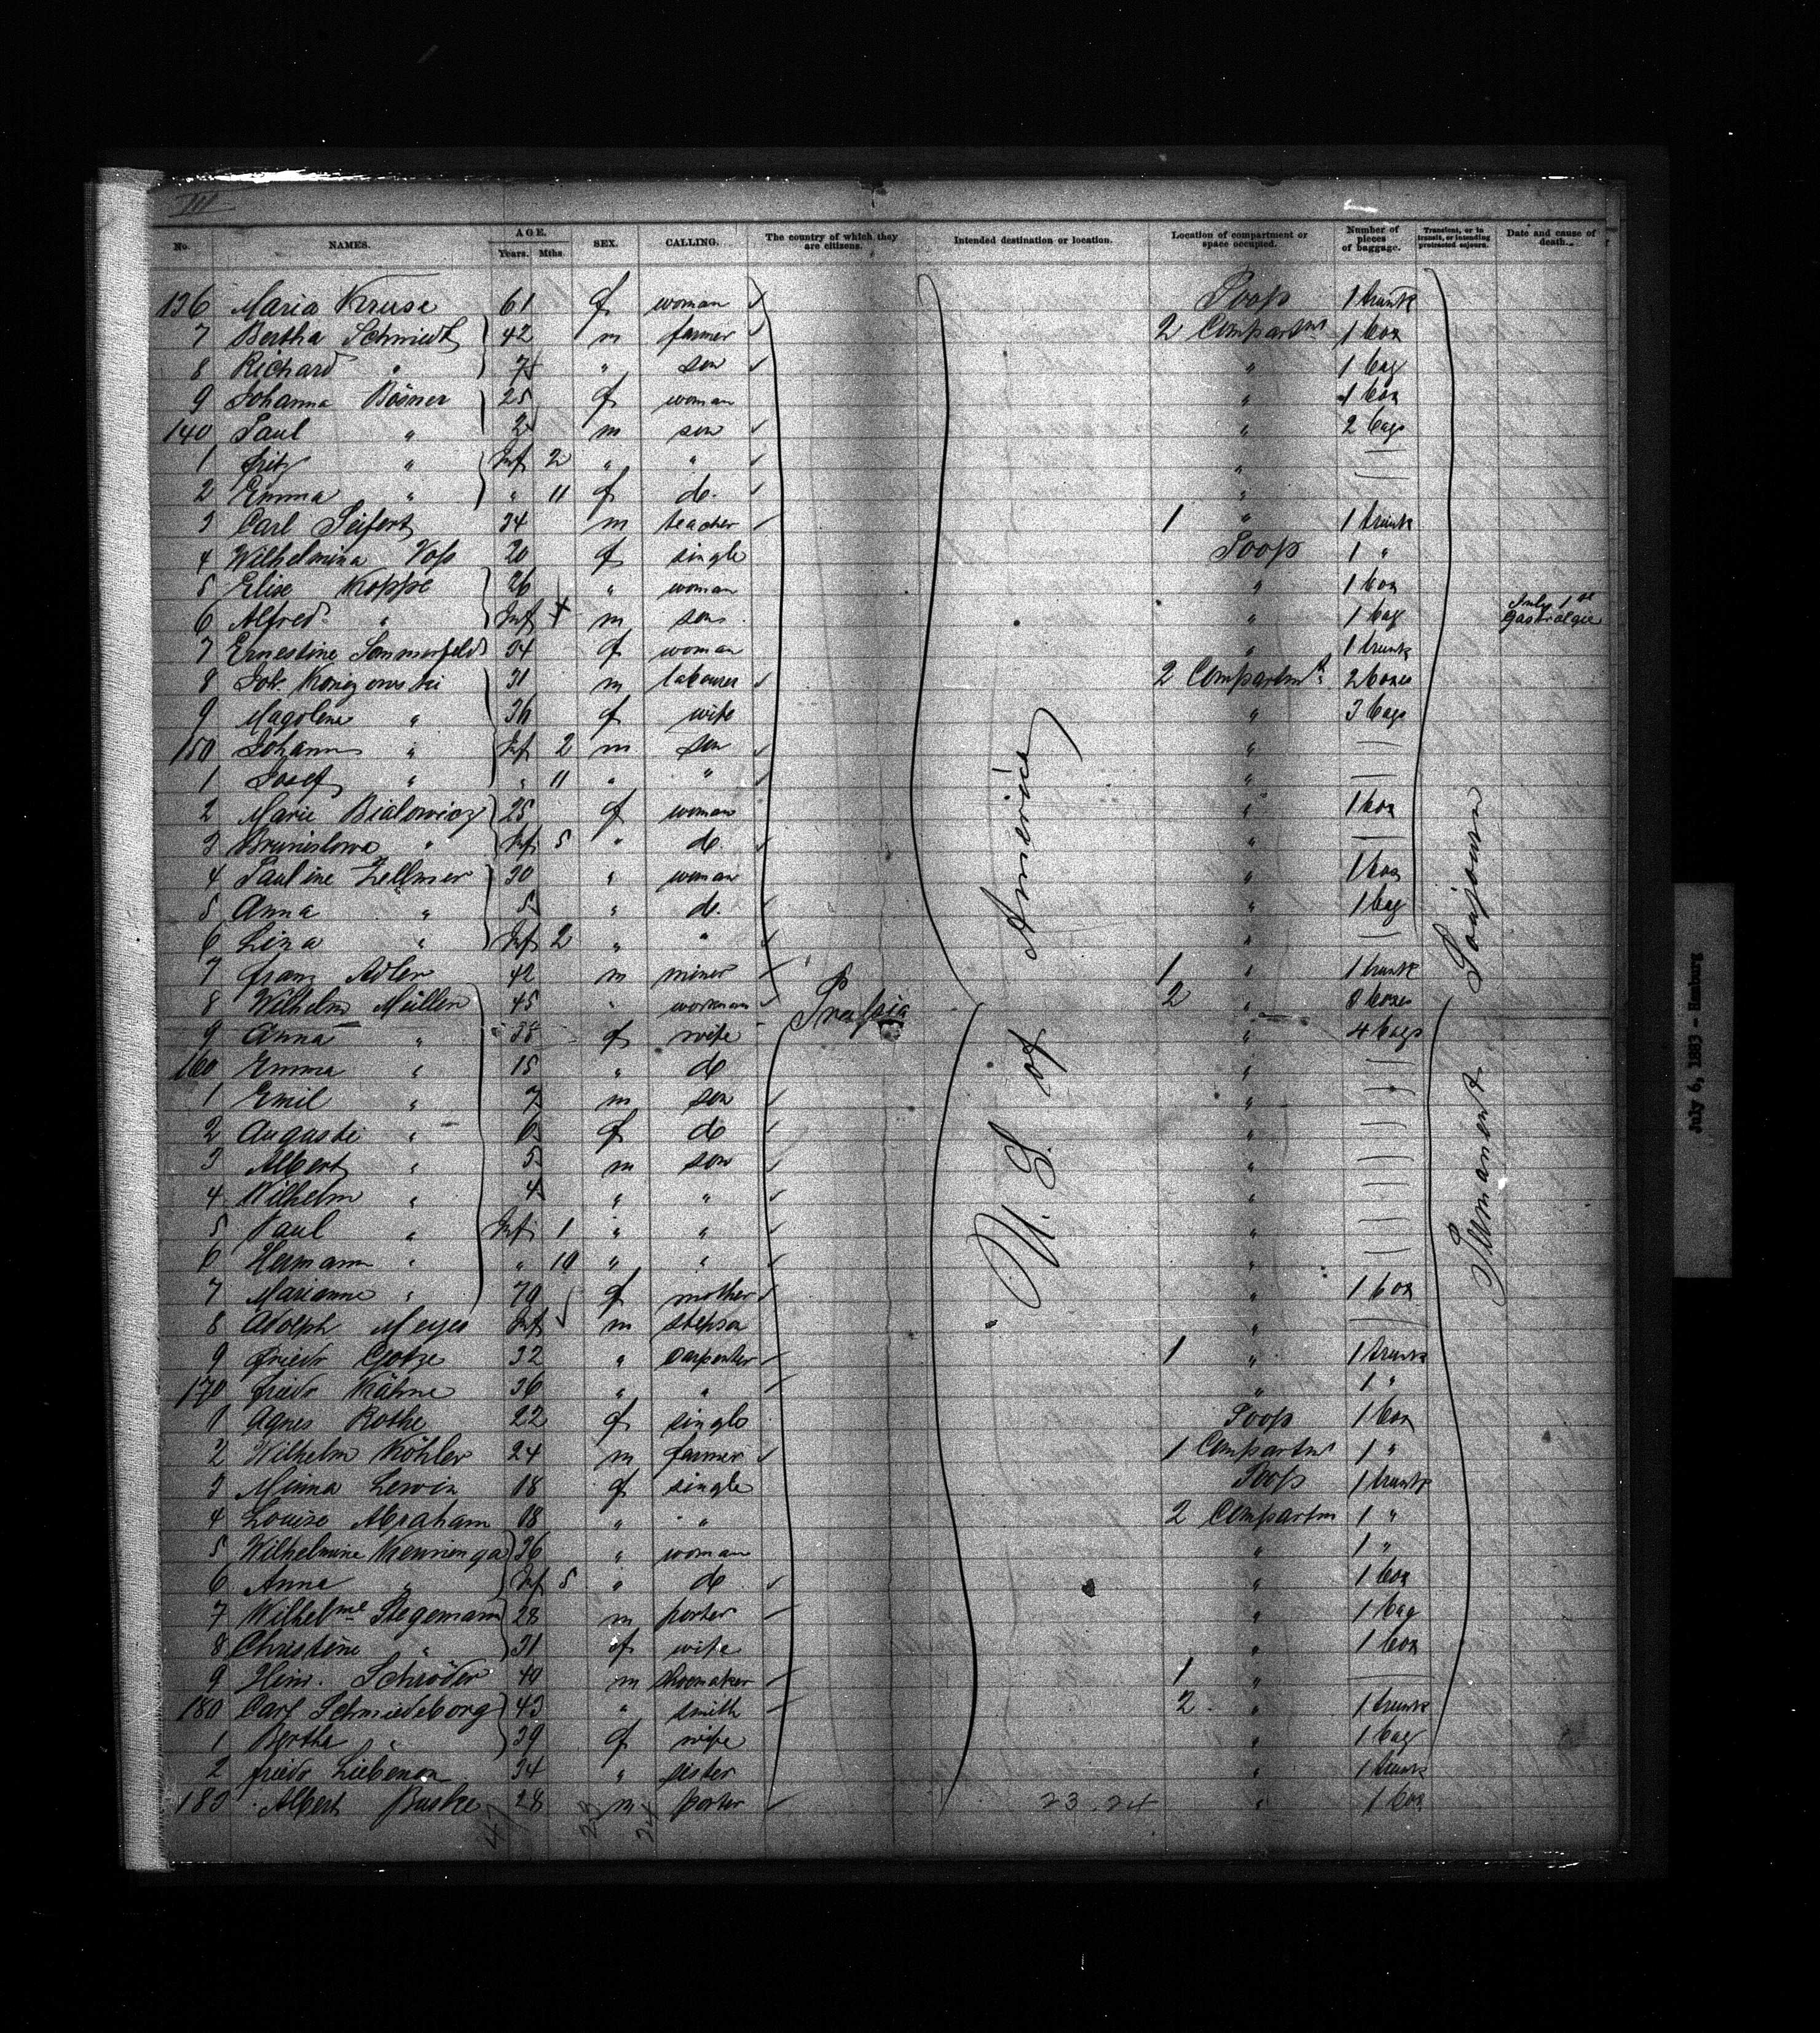 III
No. NAMES. AGE. Years. Mths SEX. CALLING. The country of which they are citizens. Intended destination or location. Location of compartment or space occupied. Number of pieces of baggage. Transient, or in transit, or intending protracted sojourn. Date and cause of death.
136 Maria Kruse 61 f woman Poop 1 trunk
7 Bertha Schmiedt 42 m farmer 2 Compartmt 1 box
8 Richard " 7 " son " 1 bag
9 Johanna Börner 25 f woman " 1 box
140 Paul " 2 m son " 2 bags
1 Fritz " Inf 2 " " " —
2 Emma " " 11 f do. " —
3 Carl Seifert 34 m teacher 1 " 1 trunk
4 Wilhelmina Voß 20 f single Poop 1 "
5 Elise Koppe 26 " woman " 1 box
6 Alfred " Inf m son " 1 bag July 1st Gastralgie
7 Ernestine Sommerfeld 34 f woman " 1 trunk
8 Joh. 31 m labourer 2 Compartmt. 2 boxes
9 Magdlena " 36 f wife " 3 bags
150 Johann " Inf 2 m son " —
1 Josef " " 11 " " " —
2 Marie Bialowicz 25 f woman " 1 box
3 Brunislowa " Inf 5 " do " —
4 Pauline Zellmer 30 " woman " 1 box
5 Anna " 5 " do. " 1 bag
6 Lina " Inf 2 " " " —
7 Franz Adler 42 m miner 1 " 1 trunk
8 Wilhelm Müller 45 " workman Prussia 2 " 8 boxes
9 Anna " 38 f wife " 4 bags
160 Emma " 15 " do " —
1 Emil " 7 m son " —
2 Auguste " 6 f do " —
3 Albert " 5 m son " —
4 Wilhelm " 4 " " " —
5 Paul " Inf 1 " " " —
6 Hermann " " 10 " " " —
7 Marianne " 70 f mother " 1 box
8 Adolph Meyer Inf m stepson " —
9 Friedr Gotze 32 " carpenter 1 " 1 trunk
170 Friedr Kähne 36 " " " 1 "
1 Agnes Rothe 22 f single Poop 1 box
2 Wilhelm Köhler 24 m farmer 1 Compartmt 1 "
3 Minna Lewin 18 f single Poop 1 trunk
4 Louise Abraham 18 " " 2 Compartm 1 "
5 Wilhelmine 36 " woman " 1 "
6 Anna " Inf 5 " do " 1 box
7 Wilhelme Stegemann 28 m porter " 1 bag
8 Christine " 31 f wife " 1 box
9 Heinr. Schröder 40 m shoemaker 1 " —
180 Carl Schmiedeborg 43 " smith 2 " 1 trunk
1 Bertha " 39 f wife " 1 bag
2 Friedr Liebenon 34 " sister " 1 trunk
183 Albert Buske 28 m porter " 1 box
U. S. of America
Sourjourn
Permanent
47 23 24
23.24
July 6, 1883 - Hamburg